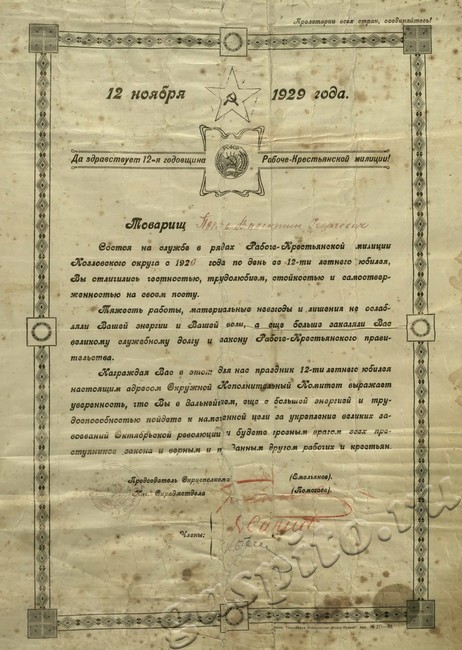 Пролетарии всех стран, соединяйтесь!
12 ноября 1929 года.
РСФСР
Да здравствует 12-я годовщина Рабоче-Крестьянской милиции!
Товарищ Валентин Георгиевич
Состоя на службе в рядах Рабоче-Крестьянской милиции
Козловского округа с 1926 года по день ее 12-ти летнего юбилея,
Вы отличились честностью, трудолюбием, стойкостью и самоотвер-
женностью на своем посту.
Тяжесть работы, материальные невзгоды и лишения не ослаб-
ляли Вашей энергии и Вашей воли, а еще больше закаляли Вас
великому служебному долгу и закону Рабоче-Крестьянского прави-
тельства.
Награждая Вас в этот для нас праздник 12-ти летнего юбилея
настоящим адресом Окружной Исполнительный Комитет выражает
уверенность, что Вы в дальнейшем, еще с большой энергией и тру-
доспособностью пойдете к намеченной цели за укрепление великих за-
воеваний Октябрьской революции и будете грозным врагом всех пре-
ступников закона и верным и преданным другом рабочих и крестьян.
Председатель Окрисполкома (Емельянов).
Нач. Окрадмотдела (Помогаев).
Члены:
gaspito.ru